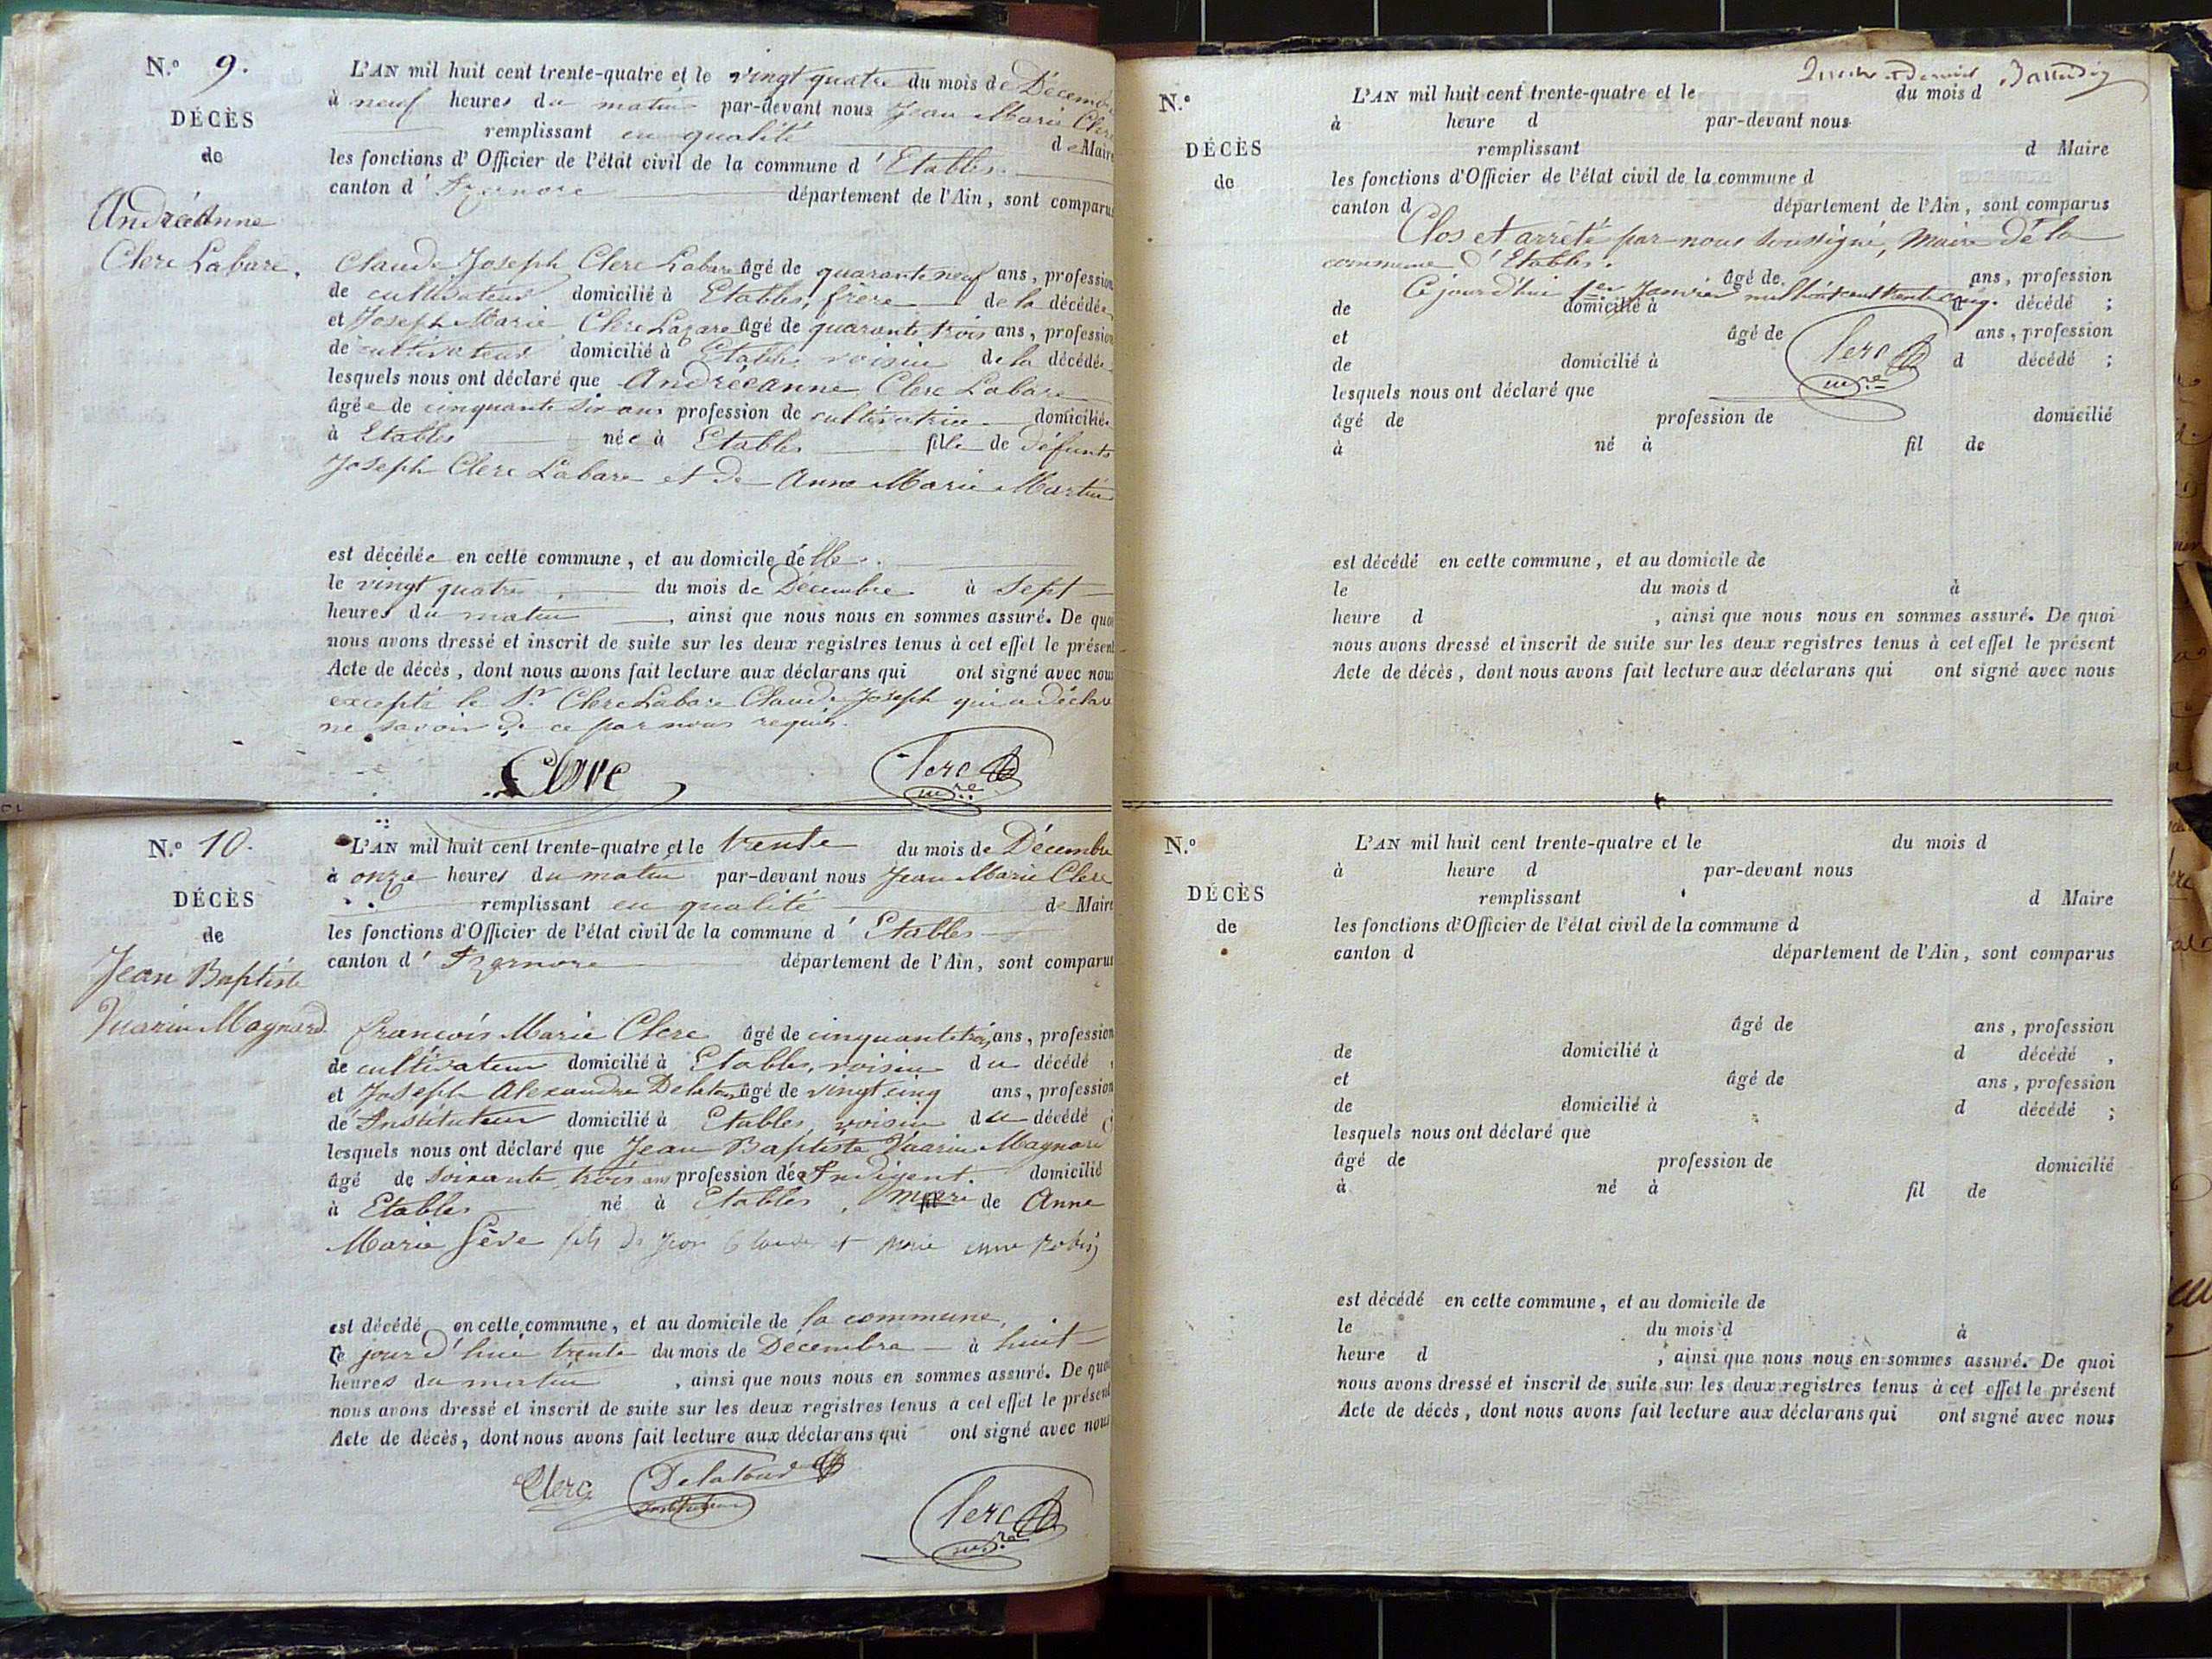 N.º 9.
DÉCÈS
de
Andréeanne
Clerc Labare.
L'AN mil huit cent trente-quatre et le vingt quatre du mois de Décembre
à neuf heures du matin par-devant nous Jean Marie Clerc
remplissant en qualité de Maire
les fonctions d'Officier de l'état civil de la commune d'Etables
canton d'Izernore département de l'Ain, sont comparus
Claude Joseph Clerc Labare âgé de quarante neuf ans, profession
de cultivateur domicilié à Etables, frère de la décédée
et Joseph Marie Clerc Lazare âgé de quarante trois ans, profession
de cultivateur domicilié à Etables voisin de la décédée
lesquels nous ont déclaré que Andréeanne Clerc Labare
âgée de cinquante six ans profession de cultivatrice domiciliée
à Etables née à Etables fille de défunts
Joseph Clerc Labare et de Anne Marie Martin
est décédée en cette commune, et au domicile d'elle.
le vingt quatre du mois de Décembre à Sept
heures du matin, ainsi que nous nous en sommes assuré. De quoi
nous avons dressé et inscrit de suite sur les deux registres tenus à cet effet le présent
Acte de décès, dont nous avons fait lecture aux déclarans qui ont signé avec nous
excepté le Sr. Clerc Labare Claude Joseph qui a déclaré
ne savoir de ce par nous requis.
Clerc Clerc
m.re
N.º 10.
DÉCÈS
de
Jean Baptiste
Vuarin Magnard
L'AN mil huit cent trente-quatre et le trente du mois de Décembre
à onze heures du matin par-devant nous Jean Marie Clerc
remplissant en qualité de Maire
les fonctions d'Officier de l'état civil de la commune d'Etables
canton d'Izernore département de l'Ain, sont comparus
François Marie Clerc âgé de cinquante trois ans, profession
de cultivateur domicilié à Etables, voisin du décédé,
et Joseph Alexandre Delatour âgé de vingt cinq ans, profession
de Instituteur domicilié à Etables, voisin du décédé;
lesquels nous ont déclaré que Jean Baptiste Vuarin Magnard
âgé de soixante trois ans profession de Indigent. domicilié
à Etables né à Etables, marri de Anne
Marie Sève fils de jean Claude et marie anne Robin
est décédé en cette commune, et au domicile de la commune,
Ce jour d'hui trente du mois de Décembre à huit
heures du matin, ainsi que nous nous en sommes assuré. De quoi
nous avons dressé et inscrit de suite sur les deux registres tenus à cet effet le présent
Acte de décès, dont nous avons fait lecture aux déclarans qui ont signé avec nous
Clerc Delatour
instituteur
Clerc
m.re
N.º
DÉCÈS
de
L'AN mil huit cent trente-quatre et le du mois d
à heure d par-devant nous
remplissant d Maire
les fonctions d'Officier de l'état civil de la commune d
canton d département de l'Ain, sont comparus
Clos et arrêté par nous soussigné, Maire de la
commune d'Etables.
âgé de ans, profession
Ce jour d'hui 1er Janvier mil huit cent trente cinq.
de domicilié à d décédé;
et âgé de ans, profession
Clerc
m.re
de domicilié à d décédé;
lesquels nous ont déclaré que
âgé de profession de domicilié
à né à fil de
est décédé en cette commune, et au domicile de
le du mois d à
heure d , ainsi que nous nous en sommes assuré. De quoi
nous avons dressé et inscrit de suite sur les deux registres tenus à cet effet le présent
Acte de décès, dont nous avons fait lecture aux déclarans qui ont signé avec nous
N.º
DÉCÈS
de
L'AN mil huit cent trente-quatre et le du mois d
à heure d par-devant nous
remplissant d Maire
les fonctions d'Officier de l'état civil de la commune d
canton d département de l'Ain, sont comparus
âgé de ans, profession
de domicilié à d décédé,
et âgé de ans, profession
de domicilié à d décédé;
lesquels nous ont déclaré que
âgé de profession de domicilié
à né à fil de
est décédé en cette commune, et au domicile de
le du mois d à
heure d , ainsi que nous nous en sommes assuré. De quoi
nous avons dressé et inscrit de suite sur les deux registres tenus à cet effet le présent
Acte de décès, dont nous avons fait lecture aux déclarans qui ont signé avec nous